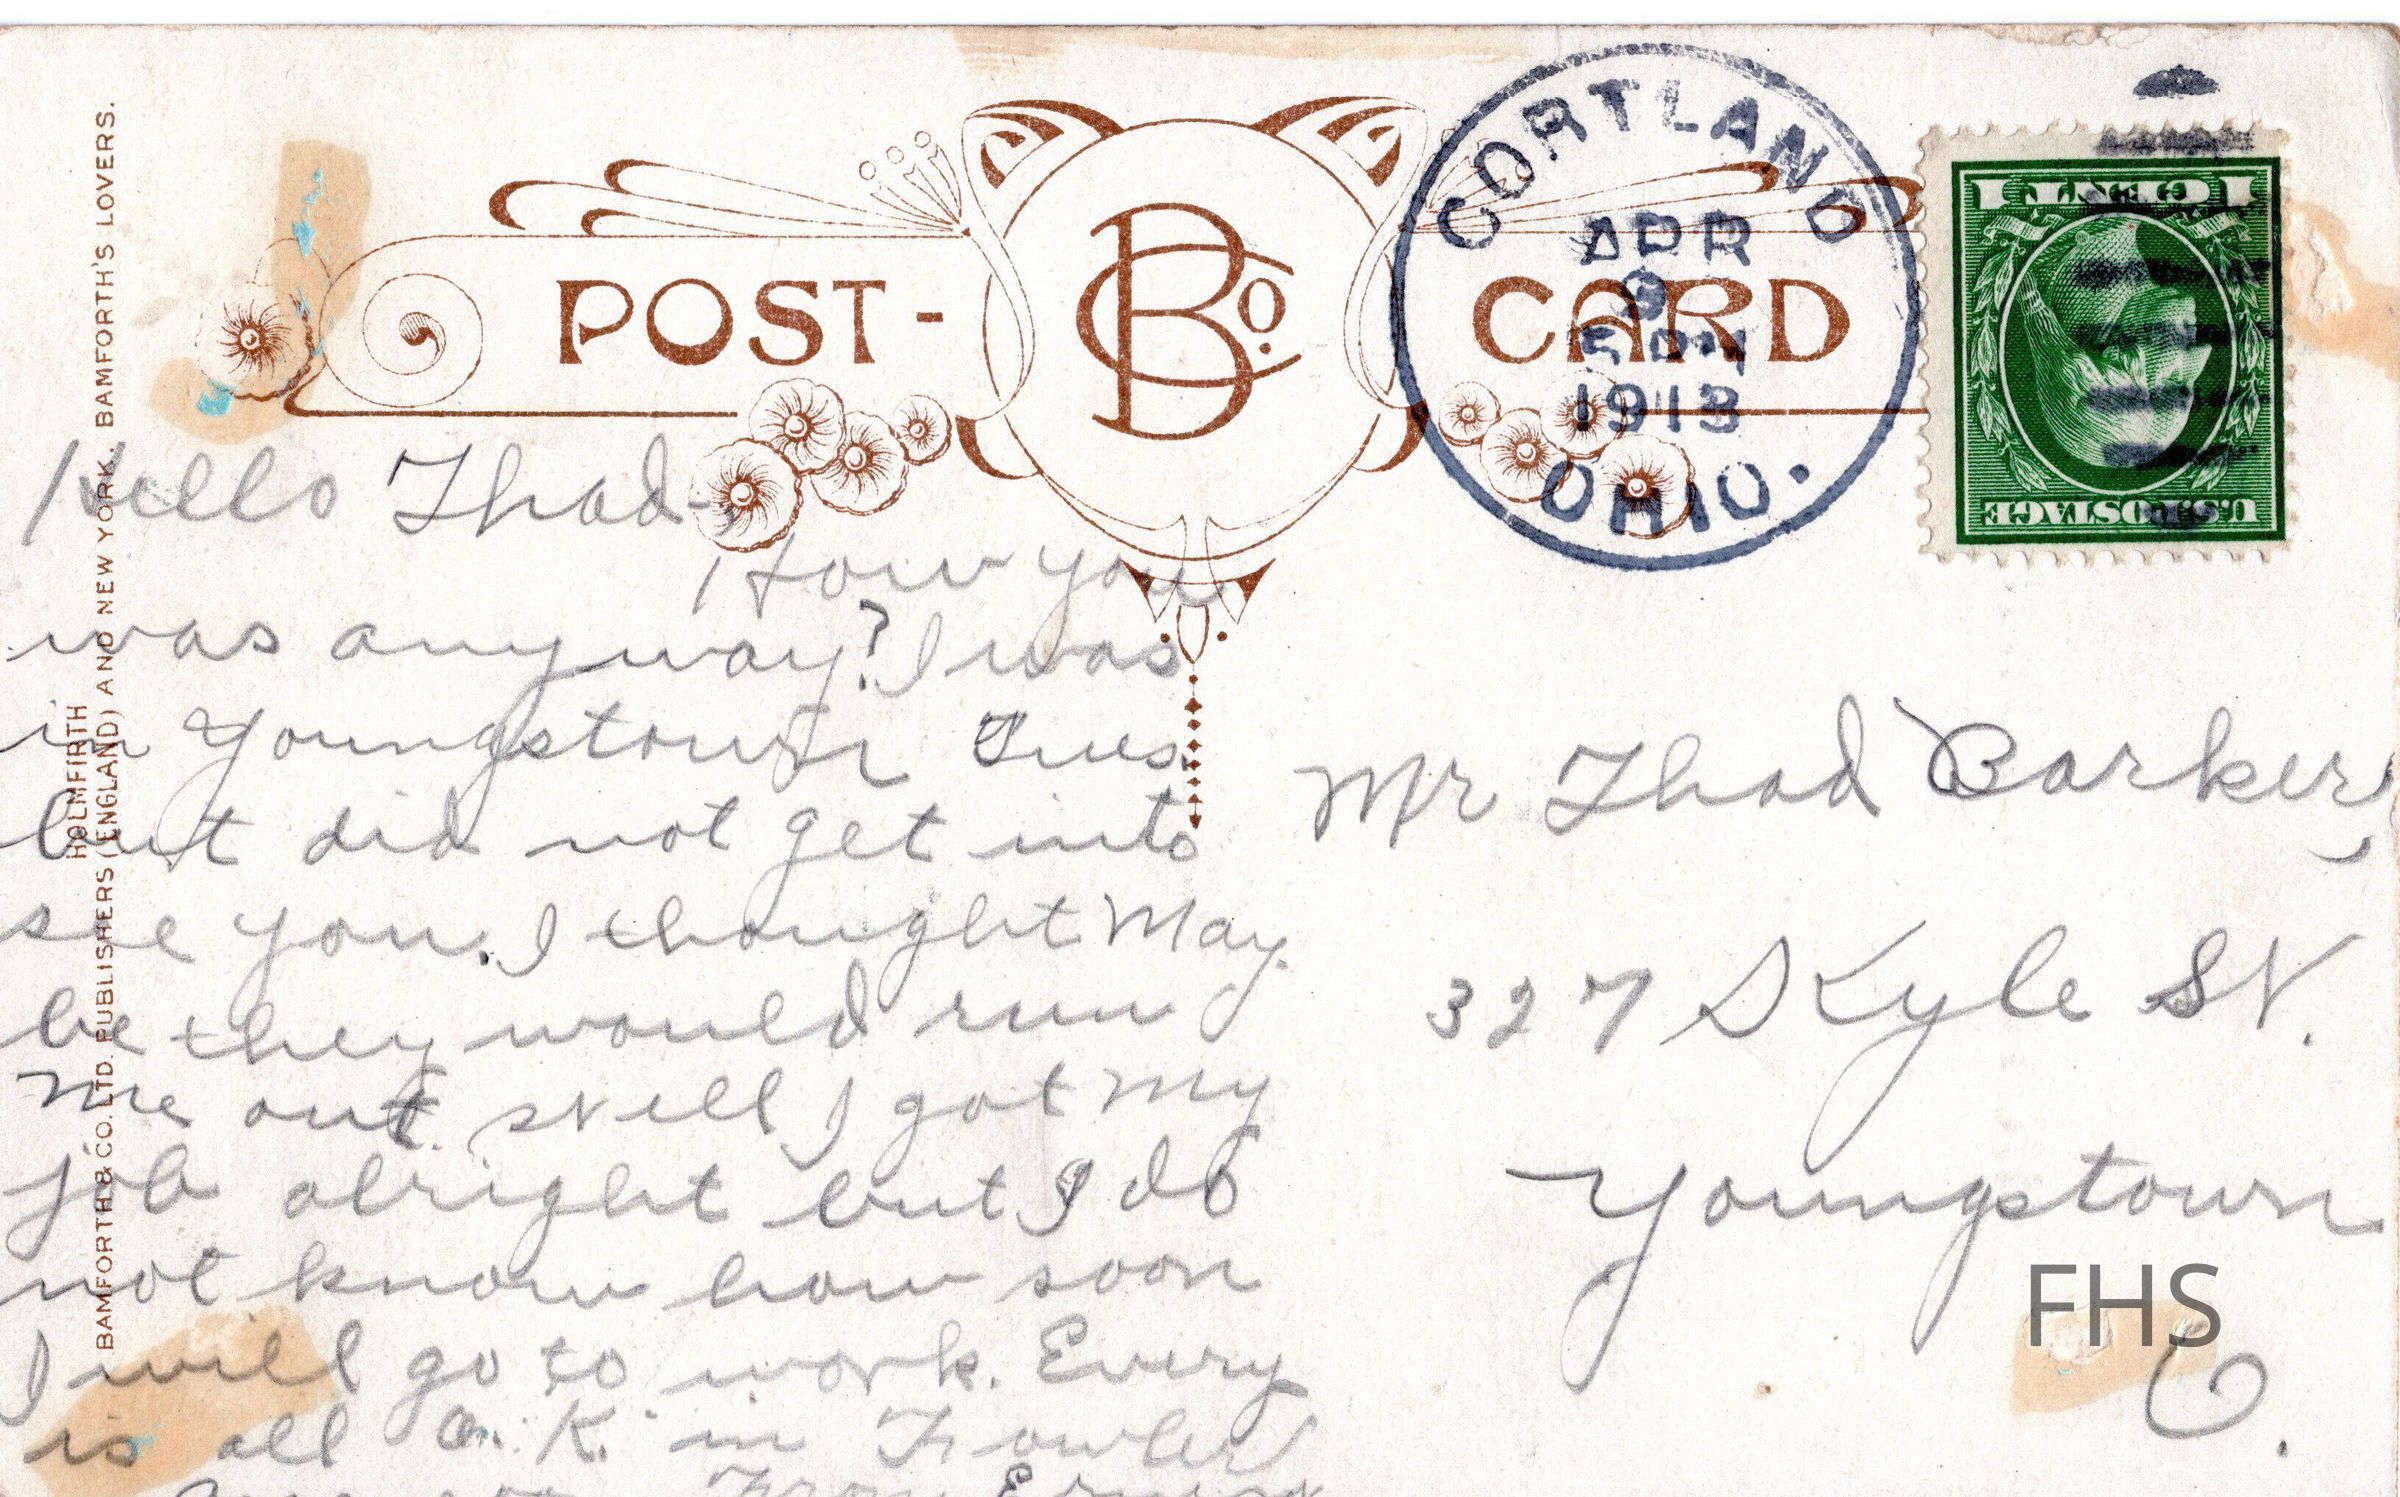 BAMFORTH & CO. LTD. PUBLISHERS (ENGLAND) AND NEW YORK. BAMFORTH'S LOVERS.
HOLMFIRTH
POST-
BCo.
CARD
CORTLAND
APR
9
5 PM
1913
OHIO.
1 CENT 1
U.S. POSTAGE
Hello Thad-,
How you
was anyway? I was
in Youngstown Tues.
but did not get into
see you. I thought May
be they would run
me out. still I got my
job alright but I do
not know how soon
I will go to work. Every
is all O.K. in Fowler
From
Mr Thad Barker,
327 Kyle St.
Youngstown
FHS
O.